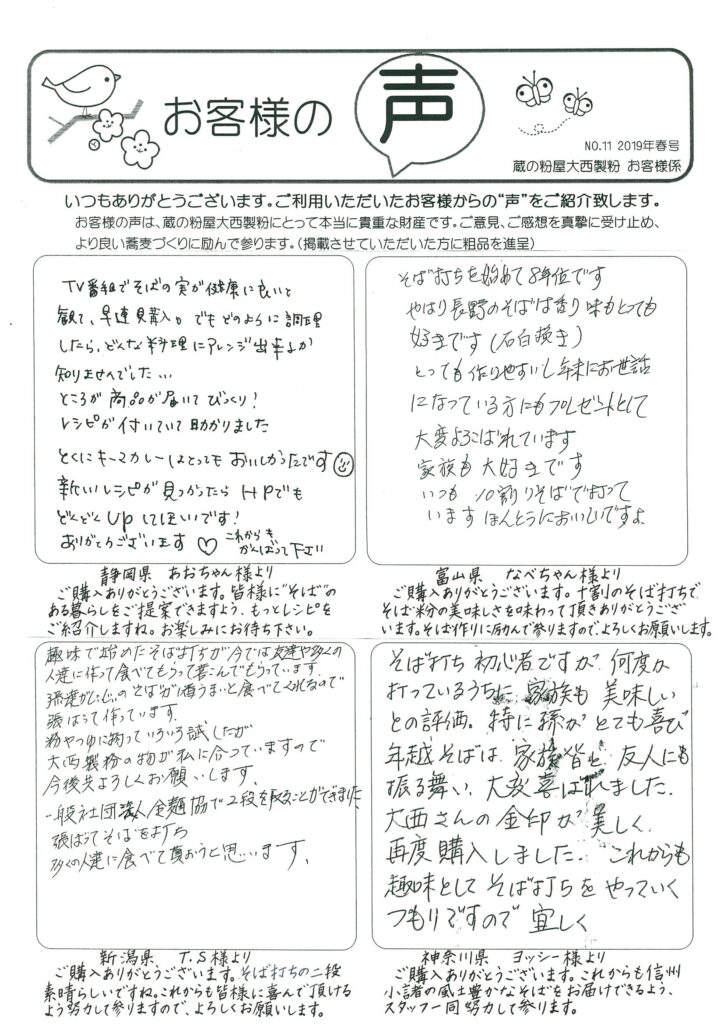 お客様の声
NO.11 2019年春号
蔵の粉屋大西製粉 お客様係
いつもありがとうございます。ご利用いただいたお客様からの“声”をご紹介致します。
お客様の声は、蔵の粉屋大西製粉にとって本当に貴重な財産です。ご意見、ご感想を真摯に受け止め、
より良い蕎麦づくりに励んで参ります。（掲載させていただいた方に粗品を進呈）
TV番組でそばの実が健康に良いと
観て、早速購入。でもどのように調理
したら、どんな料理にアレンジ出来るか
知りませんでした…
ところが商品が届いてびっくり！
レシピが付いていて助かりました
とくにキーマカレーはとってもおいしかったです
新しいレシピが見つかったらHPでも
どんどんUpしてほしいです！
ありがとうございます♡ これからも
がんばって下さい
静岡県　あおちゃん様より
ご購入ありがとうございます。皆様に“そば”の
ある暮らしをご提案できますよう、もっとレシピを
ご紹介しますね。お楽しみにお待ち下さい。
そば打ちを始めて8年位です
やはり長野のそばは香り味もとても
好きです（石臼挽き）
とっても作りやすいし年末にお世話
になっている方にもプレゼントとして
大変よろこばれています
家族も大好きです
いつも10割りそばで打って
います ほんとうにおいしいですよ
富山県　なべちゃん様より
ご購入ありがとうございます。十割のそば打ちで
そば粉の美味しさを味わって頂きありがとうござい
います。そば作りに励んで参りますので、よろしくお願いします。
趣味で始めたそば打ちが今では友達や多くの
人達に作って食べてもらって喜こんでもらっています.
孫達がじいじのそばが1番うまいと食べてくれるので
張はって作っています.
粉やつゆに拘っていろいろ試したが
大西製粉の物が私に合っていますので
今後共よろしくお願いします.
一般社団法人全麺協で2段を取ることができました.
張ばってそばを打ち
多くの人達に食べて頂おうと思います.
新潟県　T.S様より
ご購入ありがとうございます。そば打ちの二段
素晴らしいですね。これからも皆様に喜んで頂ける
よう努力して参りますので、よろしくお願いします。
そば打ち初心者ですが、何度か
打っているうちに、家族も美味しい
との評価。特に孫がとても喜び
年越そばは、家族皆と、友人にも
振る舞い、大変喜ばれました.
大西さんの金印が美しく、
再度購入しました. これからも
趣味としてそば打ちをやっていく
つもりですので宜しく
神奈川県　ヨッシー様より
ご購入ありがとうございます。これからも信州
小諸の風土豊かなそばをお届けできるよう、
スタッフ一同努力して参ります。